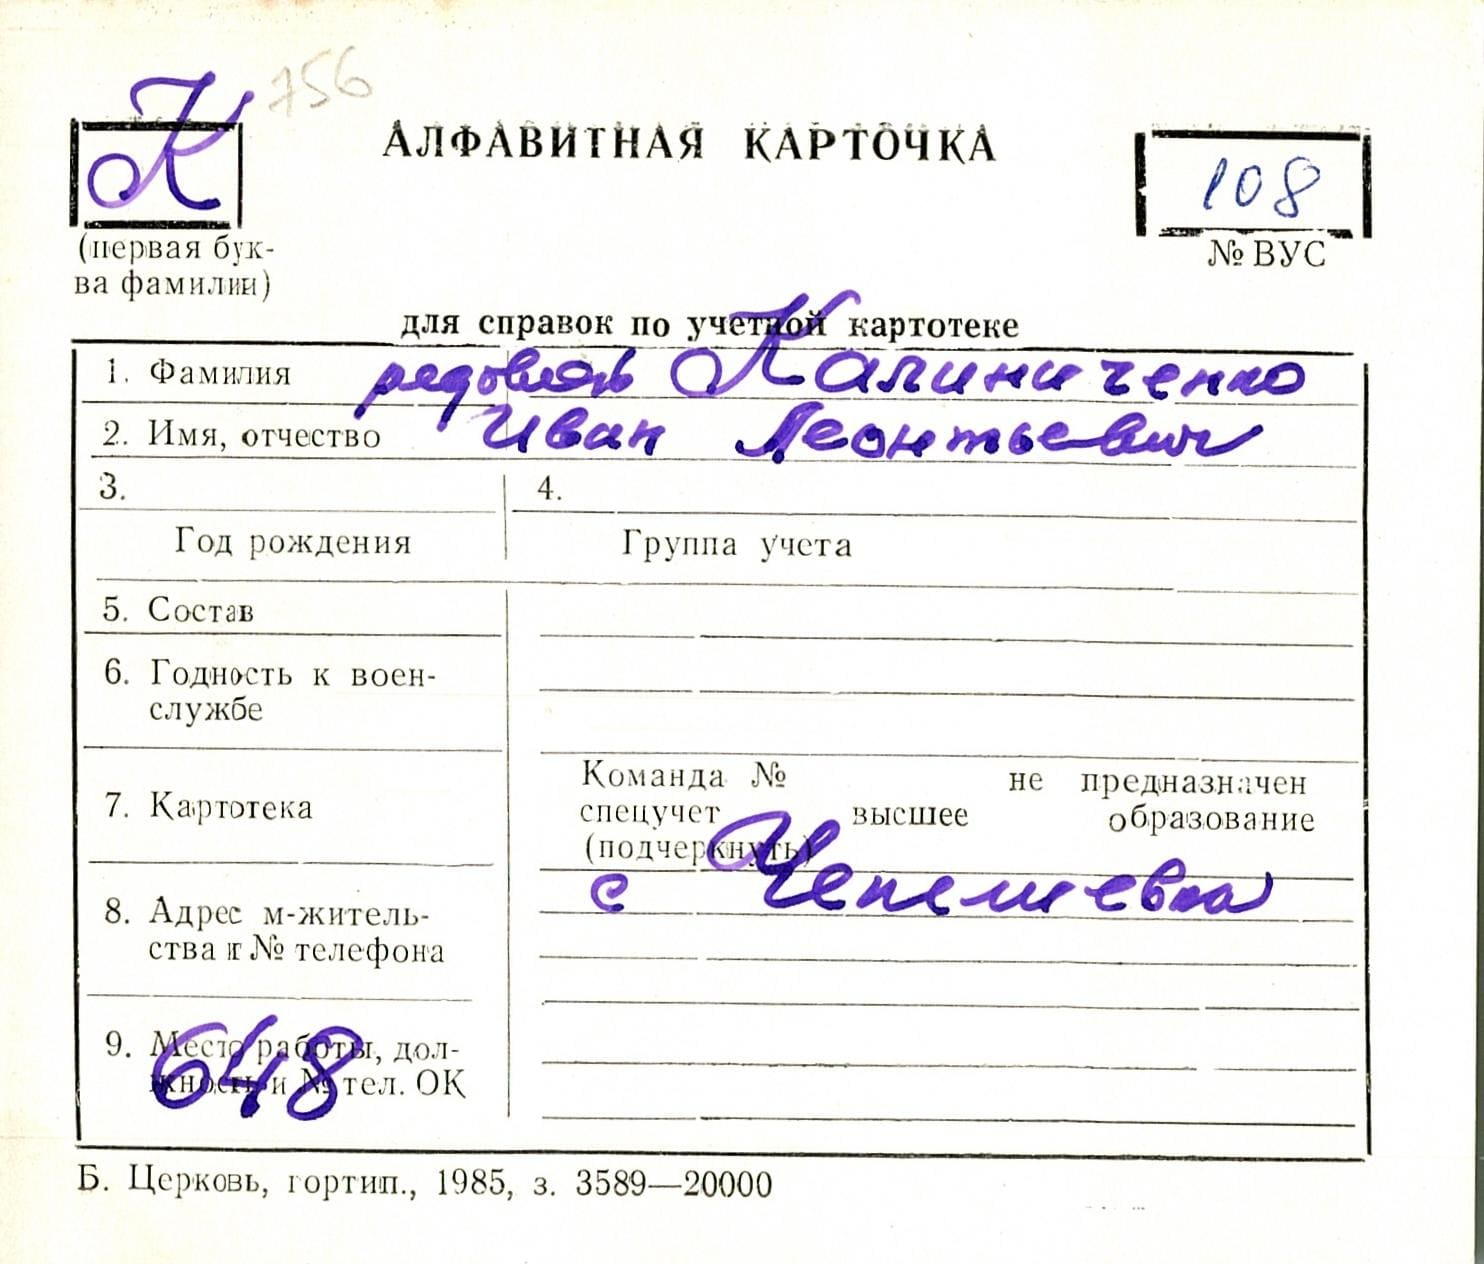 К 756
АЛФАВИТНАЯ КАРТОЧКА
108
(первая бук-
ва фамилии)
№ ВУС
для справок по учетной картотеке
1. Фамилия рядовой Калиниченко
2. Имя, отчество Иван Леонтьевич
3. 4.
Год рождения Группа учета
5. Состав
6. Годность к воен-
службе
7. Картотека
Команда № не предназначен
спецучет высшее образование
(подчеркнуть)
8. Адрес м-житель-
ства и № телефона
с Чепелиевка
9. Место работы, дол-
жность и № тел. ОК
648
Б. Церковь, гортип., 1985, з. 3589—20000